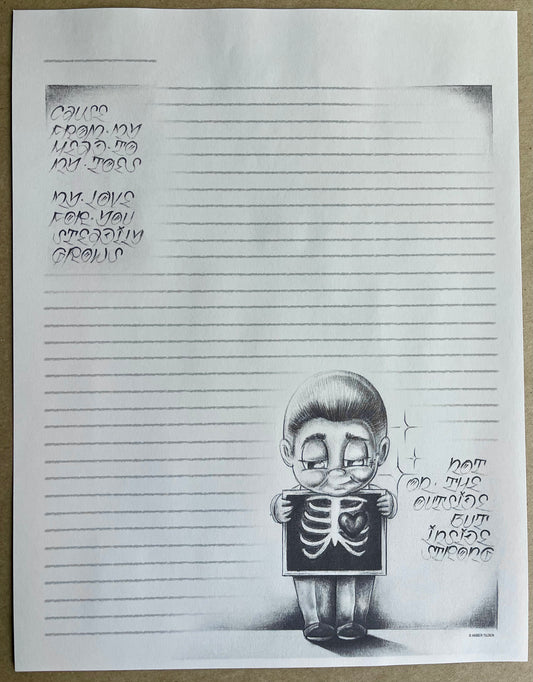 CAUSE
FROM·MY
HEAD·TO
MY·TOES
MY·LOVE
FOR·YOU
STEADILY
GROWS
NOT
ON·THE
OUTSIDE
BUT
INSIDE
STRONG